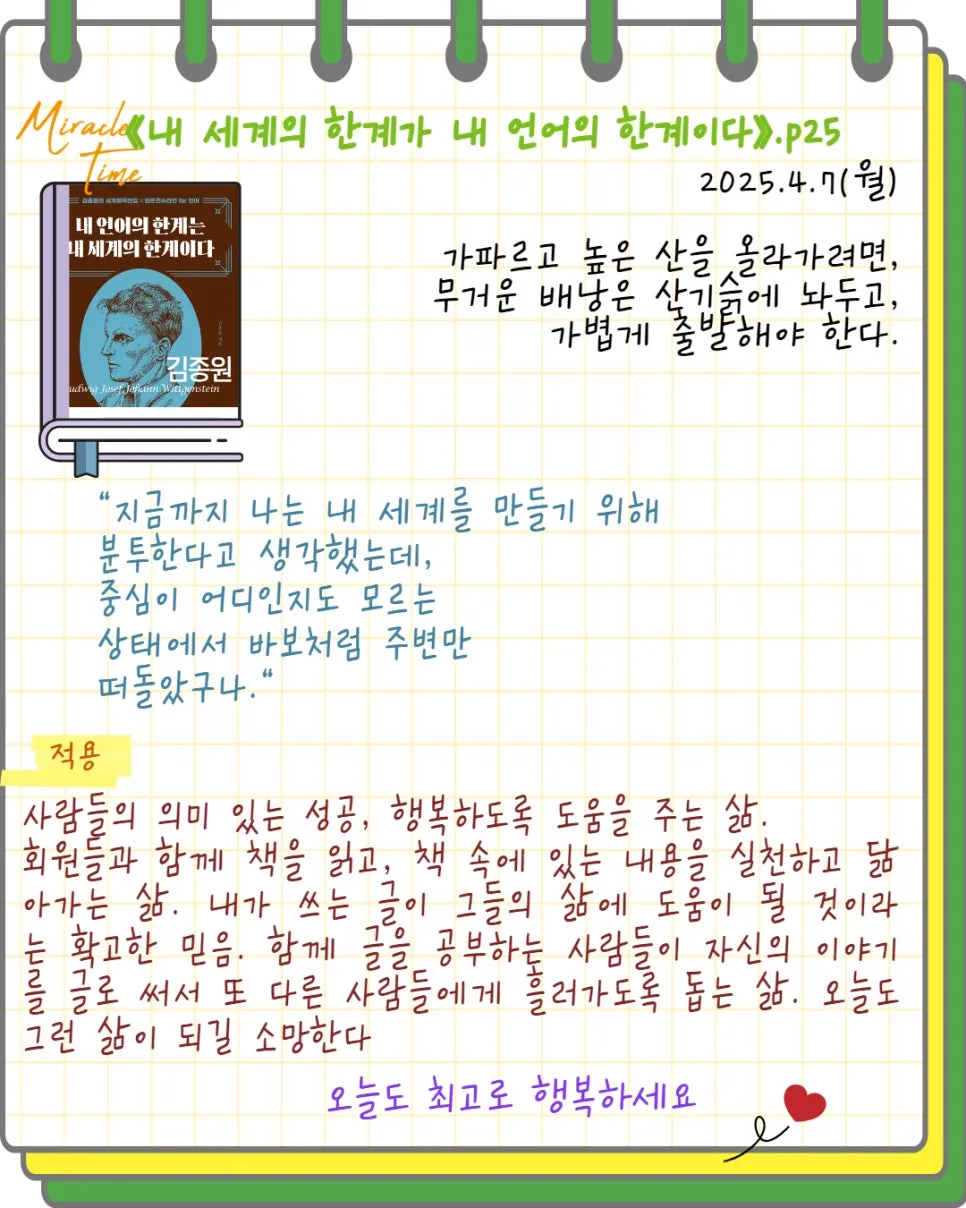 Miracle Time
《내 세계의 한계가 내 언어의 한계이다》.p25
2025.4.7(월)
내 언어의 한계는
내 세계의 한계이다
김종원
udwig Josef Johann Wittgenstein
가파르고 높은 산을 올라가려면,
무거운 배낭은 산기슭에 놔두고,
가볍게 출발해야 한다.
“지금까지 나는 내 세계를 만들기 위해
분투한다고 생각했는데,
중심이 어디인지도 모르는
상태에서 바보처럼 주변만
떠돌았구나.“
적용
사람들의 의미 있는 성공, 행복하도록 도움을 주는 삶.
회원들과 함께 책을 읽고, 책 속에 있는 내용을 실천하고 닮
아가는 삶. 내가 쓰는 글이 그들의 삶에 도움이 될 것이라
는 확고한 믿음. 함께 글을 공부하는 사람들이 자신의 이야기
를 글로 써서 또 다른 사람들에게 흘러가도록 돕는 삶. 오늘도
그런 삶이 되길 소망한다
오늘도 최고로 행복하세요